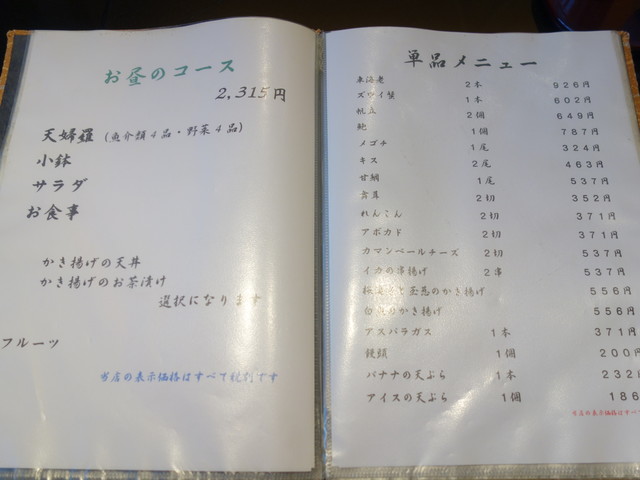 お昼のコース
2,315円
天婦羅 (魚介類4品・野菜4品)
小鉢
サラダ
お食事
かき揚げの天丼
かき揚げのお茶漬け
選択になります
フルーツ
当店の表示価格はすべて税別です
単品メニュー
車海老 2本 926円
ズワイ蟹 1本 602円
帆立 2個 649円
鮑 1個 787円
メゴチ 1尾 324円
キス 2尾 463円
甘鯛 1尾 537円
2切 352円
れんこん 2切 371円
アボカド 2切 371円
カマンベールチーズ 2切 537円
イカの串揚げ 2串 537円
のかき揚げ 556円
のかき揚げ 556円
アスパラガス 1本 371円
饅頭 1個 200円
バナナの天ぷら 1本 232
アイスの天ぷら 1個 186
当店の表示価格はすべ